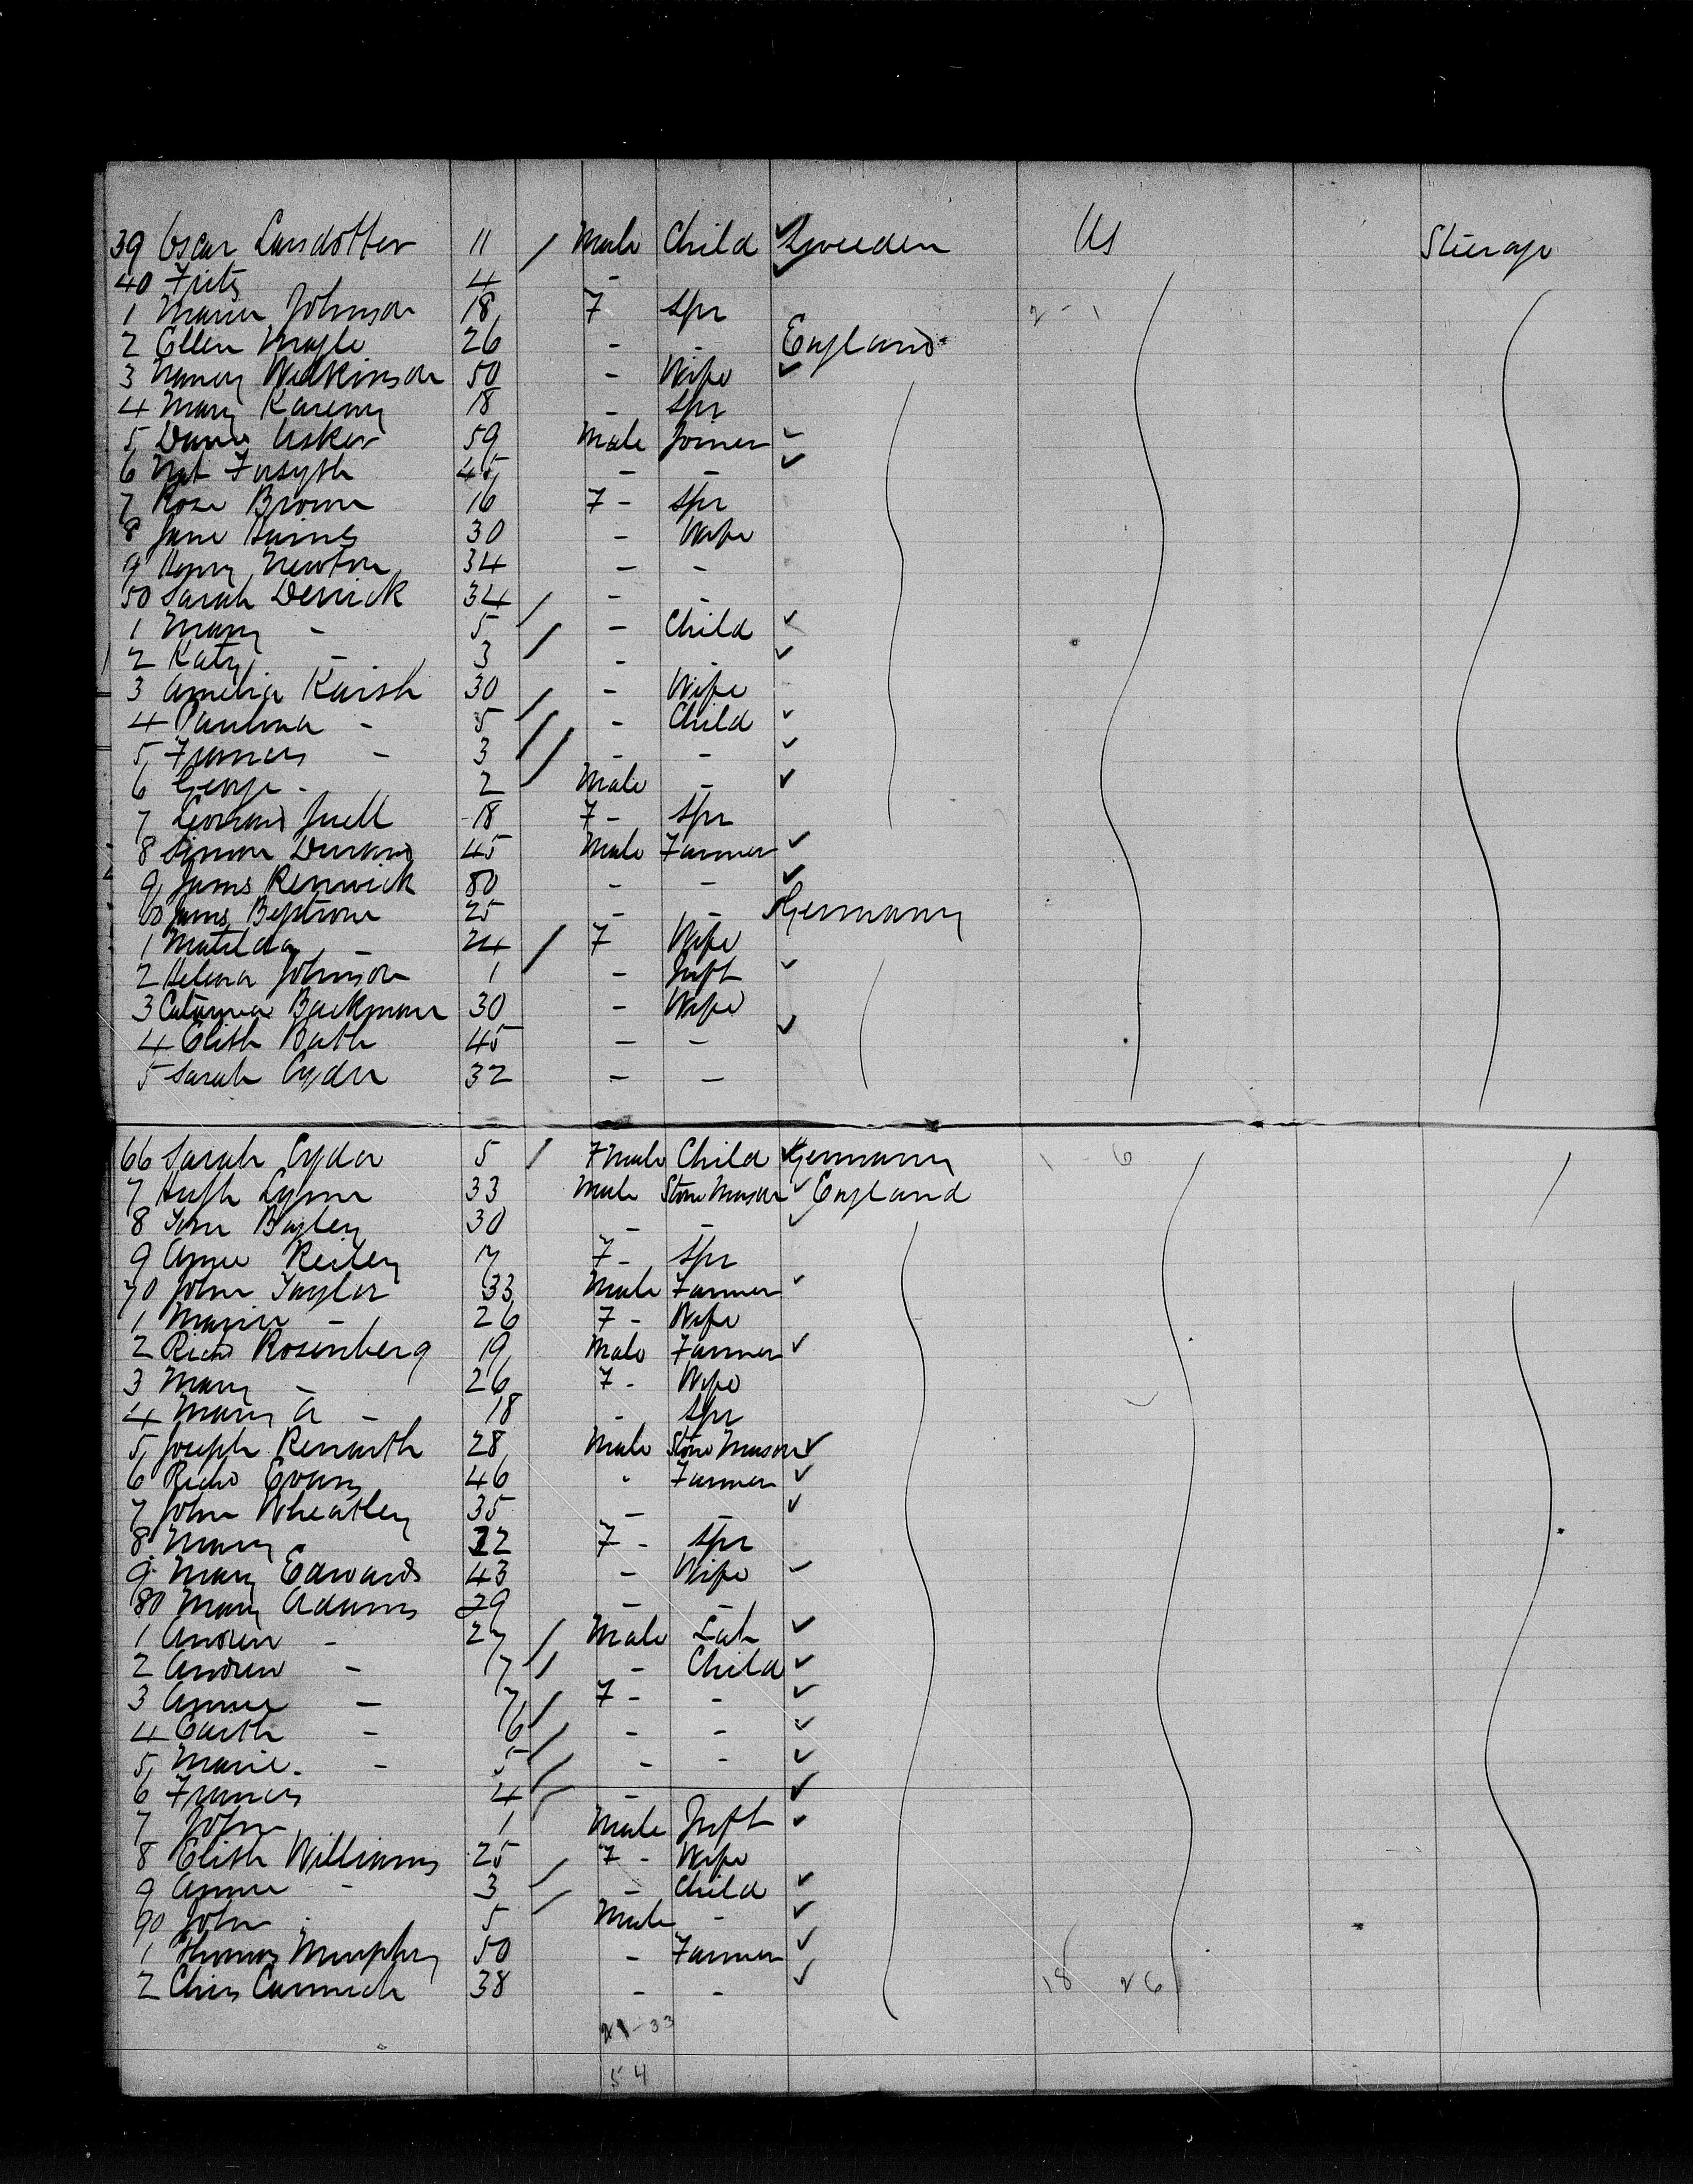 39 Oscar Larsdotter 11 / Male Child ✓ Sweeden Us Steerage
40 Fritz 4 - ✓
1 Maria Johnson 18 F Spr 2 - 1
2 Ellen 26 - - England
3 Nancy Wilkinson 50 - Wife ✓
4 Mary 18 - Spr
5 59 Male Joiner ✓
6 Forsyth 45 - - ✓
7 Rose Brown 16 F - Spr
8 Jane 30 - Wife
9 Newton 34 - -
50 Sarah Derrick 34 / - -
1 Mary - 5 / - Child ✓
2 Katy - 3 - - ✓
3 Amelia Karsh 30 / - Wife
4 Paulina - 5 / - Child ✓
5 Frances - 3 // - - ✓
6 George - 2 / Male - ✓
7 18 F - Spr
8 Simon Durand 45 Male Farmer ✓
9 James Renwick 80 - - ✓
60 James 25 - - Germany
1 Matilda - 24 / F Wife
2 Helena Johnson 1 - Inft ✓
3 Backman 30 - Wife
4 Elith Bath 45 - - ✓
5 Sarah Cyder 32 - -
66 Sarah Cyder 5 / Fmale Child ✓ Germany 1 - 6
7 Hugh Lynn 33 Male Stone Mason ✓ England
8 Bagley 30 - - ✓
9 Annie Reiley 17 F - Spr
70 John Taylor 33 Male Farmer ✓
1 Maria - 26 F - Wife
2 Richd Rosenberg 19 Male Farmer ✓
3 Mary - 26 F - Wife
4 Mary A - 18 - Spr
5 Joseph 28 Male Stone Mason ✓
6 Richd Evans 46 - Farmer ✓
7 John Wheatley 35 - - ✓
8 Mary - 22 F - Spr
9 Mary Edwards 43 - Wife ✓
80 Mary Adams 29 - -
1 Andrew - 27 / Male Lab ✓
2 Andrew - 7 / - Child ✓
3 Annie - 7 / F - - ✓
4 - 6 / - - ✓
5 Marie - 5 / - - ✓
6 Frances 4 / - ✓
7 John 1 Male Inft ✓
8 Elith Williams 25 F - Wife
9 Annie - 3 / - Child ✓
90 John 5 / Male - ✓
1 Thomas Murphy 50 - Farmer ✓
2 Chris 38 - - ✓ 18 26
21-33
54